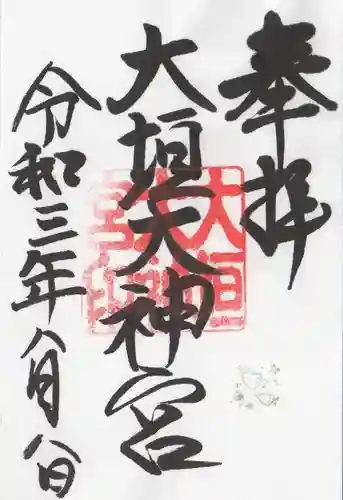 奉拝
大垣大神宮
令和三年八月八日
大垣大神宮印